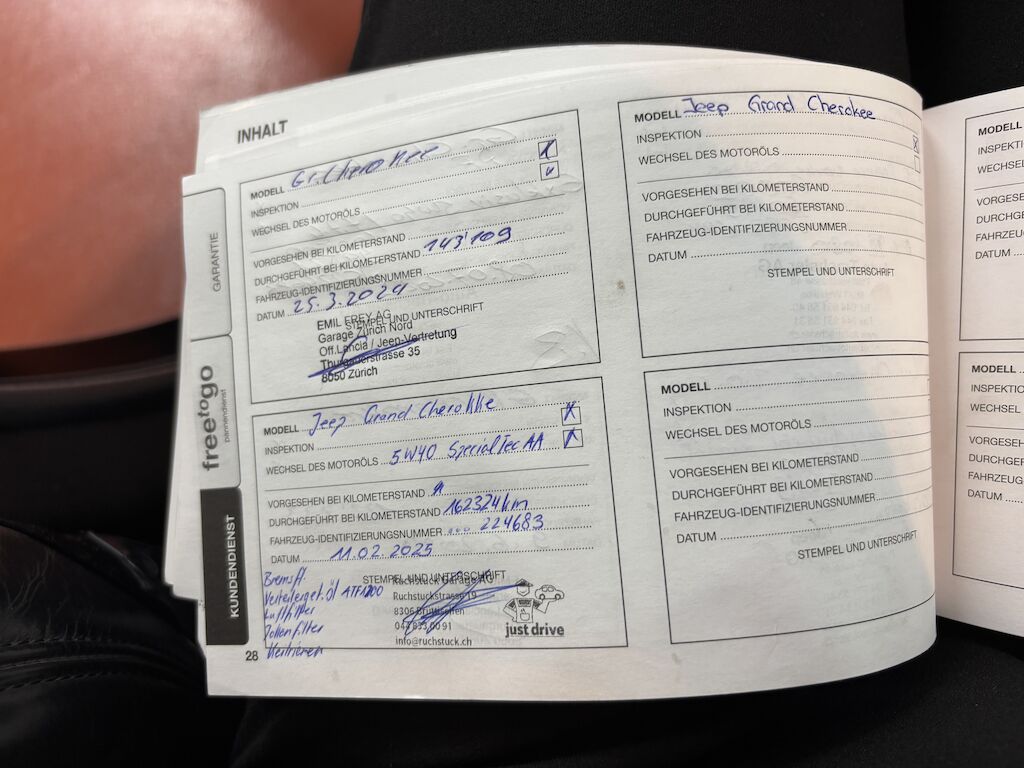 INHALT
MODELL Gr. Cherokee
INSPEKTION
WECHSEL DES MOTORÖLS
VORGESEHEN BEI KILOMETERSTAND
DURCHGEFÜHRT BEI KILOMETERSTAND 143'109
FAHRZEUG-IDENTIFIZIERUNGSNUMMER
DATUM 25.3.2024
STEMPEL UND UNTERSCHRIFT
EMIL FREY AG
Garage Zürich Nord
Off.Lancia / Jeep-Vertretung
Thurgauerstrasse 35
8050 Zürich
MODELL Jeep Grand Cherokke
INSPEKTION
WECHSEL DES MOTORÖLS 5W40 Special Tec AA
VORGESEHEN BEI KILOMETERSTAND
DURCHGEFÜHRT BEI KILOMETERSTAND 162324km
FAHRZEUG-IDENTIFIZIERUNGSNUMMER ... 224683
DATUM 11.02.2025
STEMPEL UND UNTERSCHRIFT
Bremsfl.
Verteilerget. Öl
Luftfilter
Pollenfilter
Ruchstuck Garage AG
Ruchstuckstrasse 19
8306 Brüttisellen
info@ruchstuck.ch
just drive
28
GARANTIE
freetogo
pannendienst
KUNDENDIENST
MODELL Jeep Grand Cherokee
INSPEKTION
WECHSEL DES MOTORÖLS
VORGESEHEN BEI KILOMETERSTAND
DURCHGEFÜHRT BEI KILOMETERSTAND
FAHRZEUG-IDENTIFIZIERUNGSNUMMER
DATUM
STEMPEL UND UNTERSCHRIFT
MODELL
INSPEKTION
WECHSEL DES MOTORÖLS
VORGESEHEN BEI KILOMETERSTAND
DURCHGEFÜHRT BEI KILOMETERSTAND
FAHRZEUG-IDENTIFIZIERUNGSNUMMER
DATUM
STEMPEL UND UNTERSCHRIFT
MODELL
INSPEKTI
WECHSEL
VORGESE
DURCHGE
FAHRZEU
DATUM
MODELL
INSPEKTIO
WECHSEL
VORGESEH
DURCHGEF
FAHRZEUG
DATUM